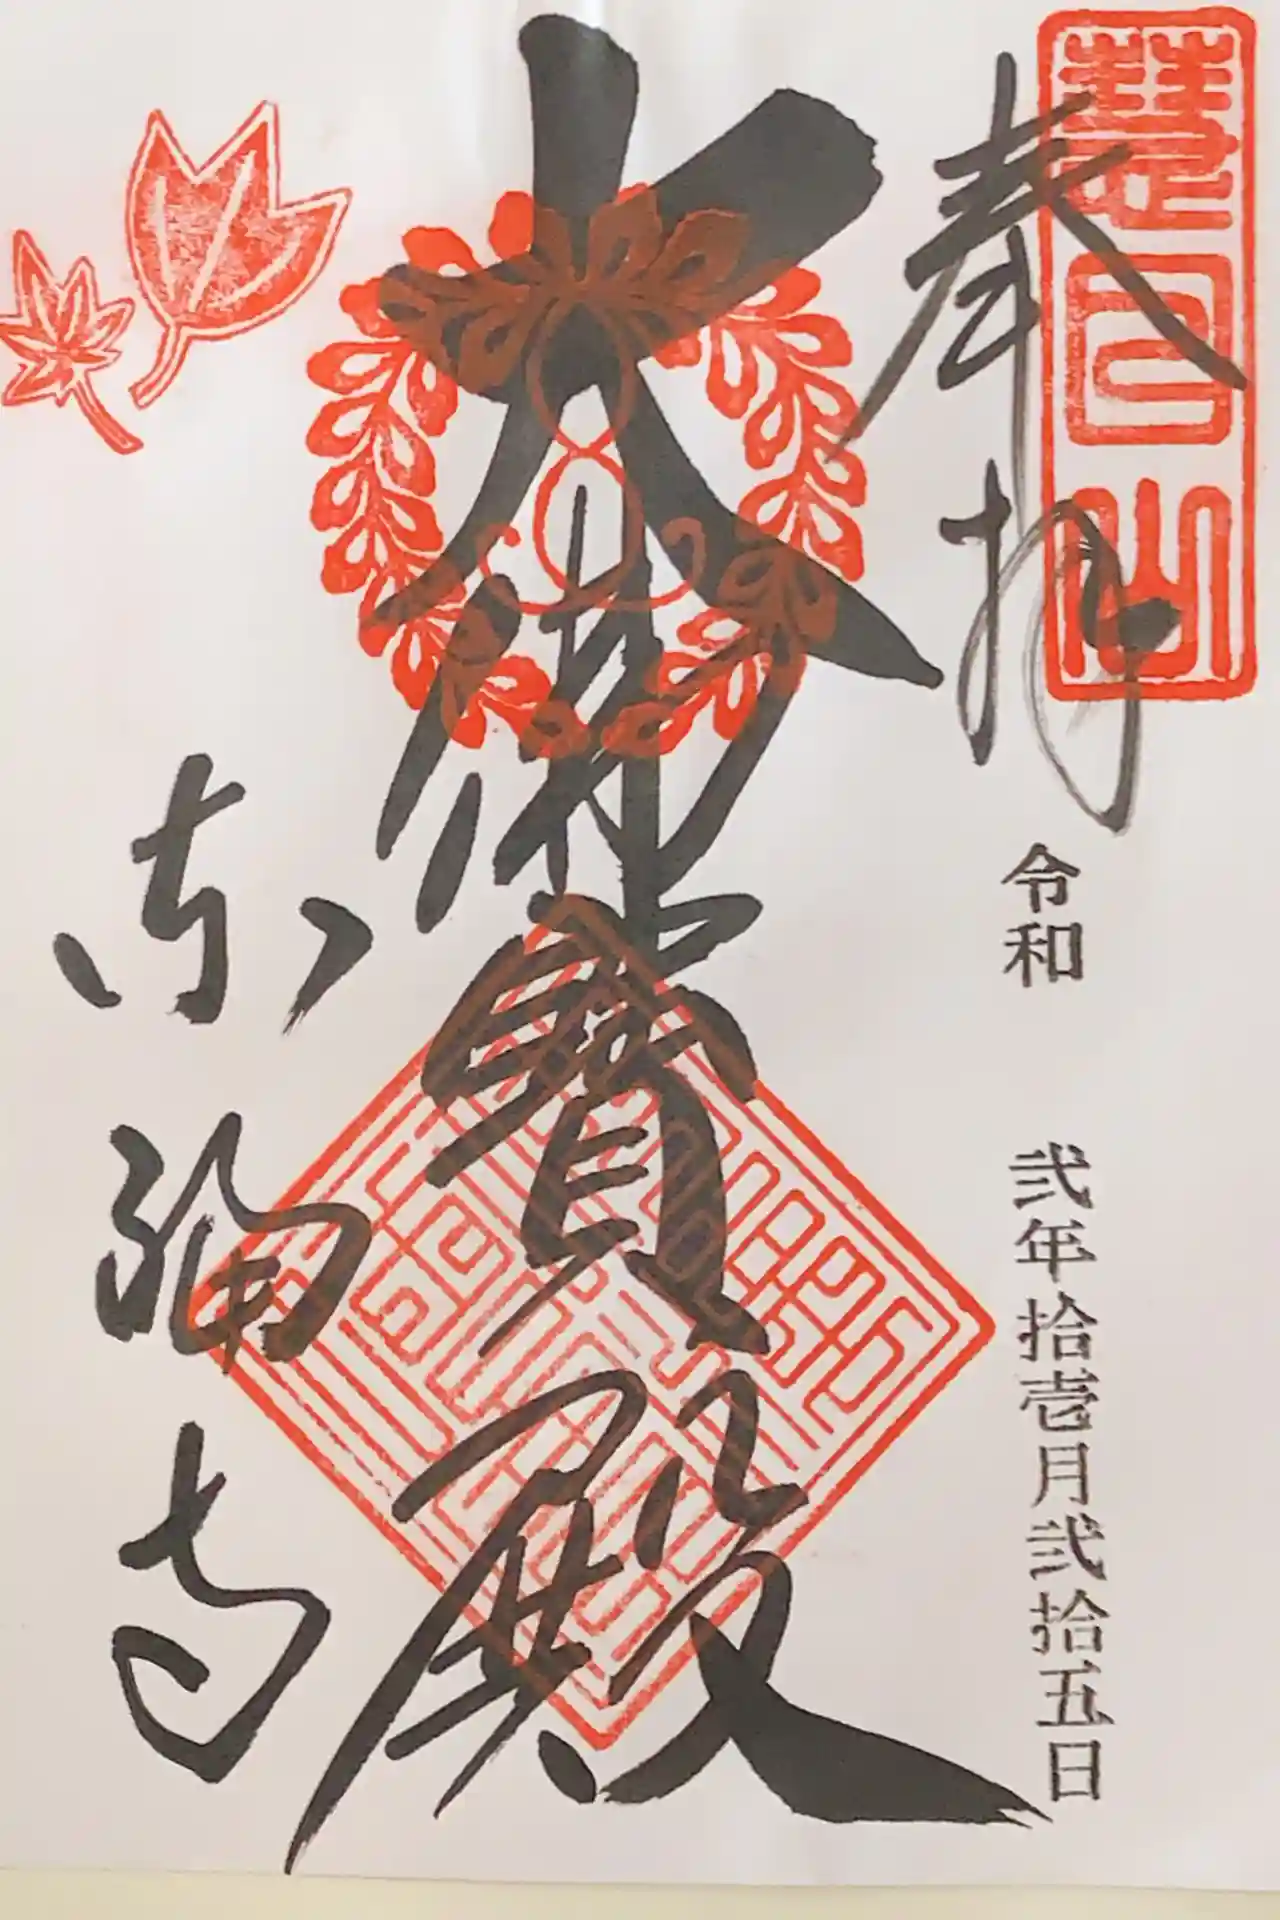 慧日山
奉拝
令和 弐年拾壱月弐拾五日
大佛寳殿
東福寺